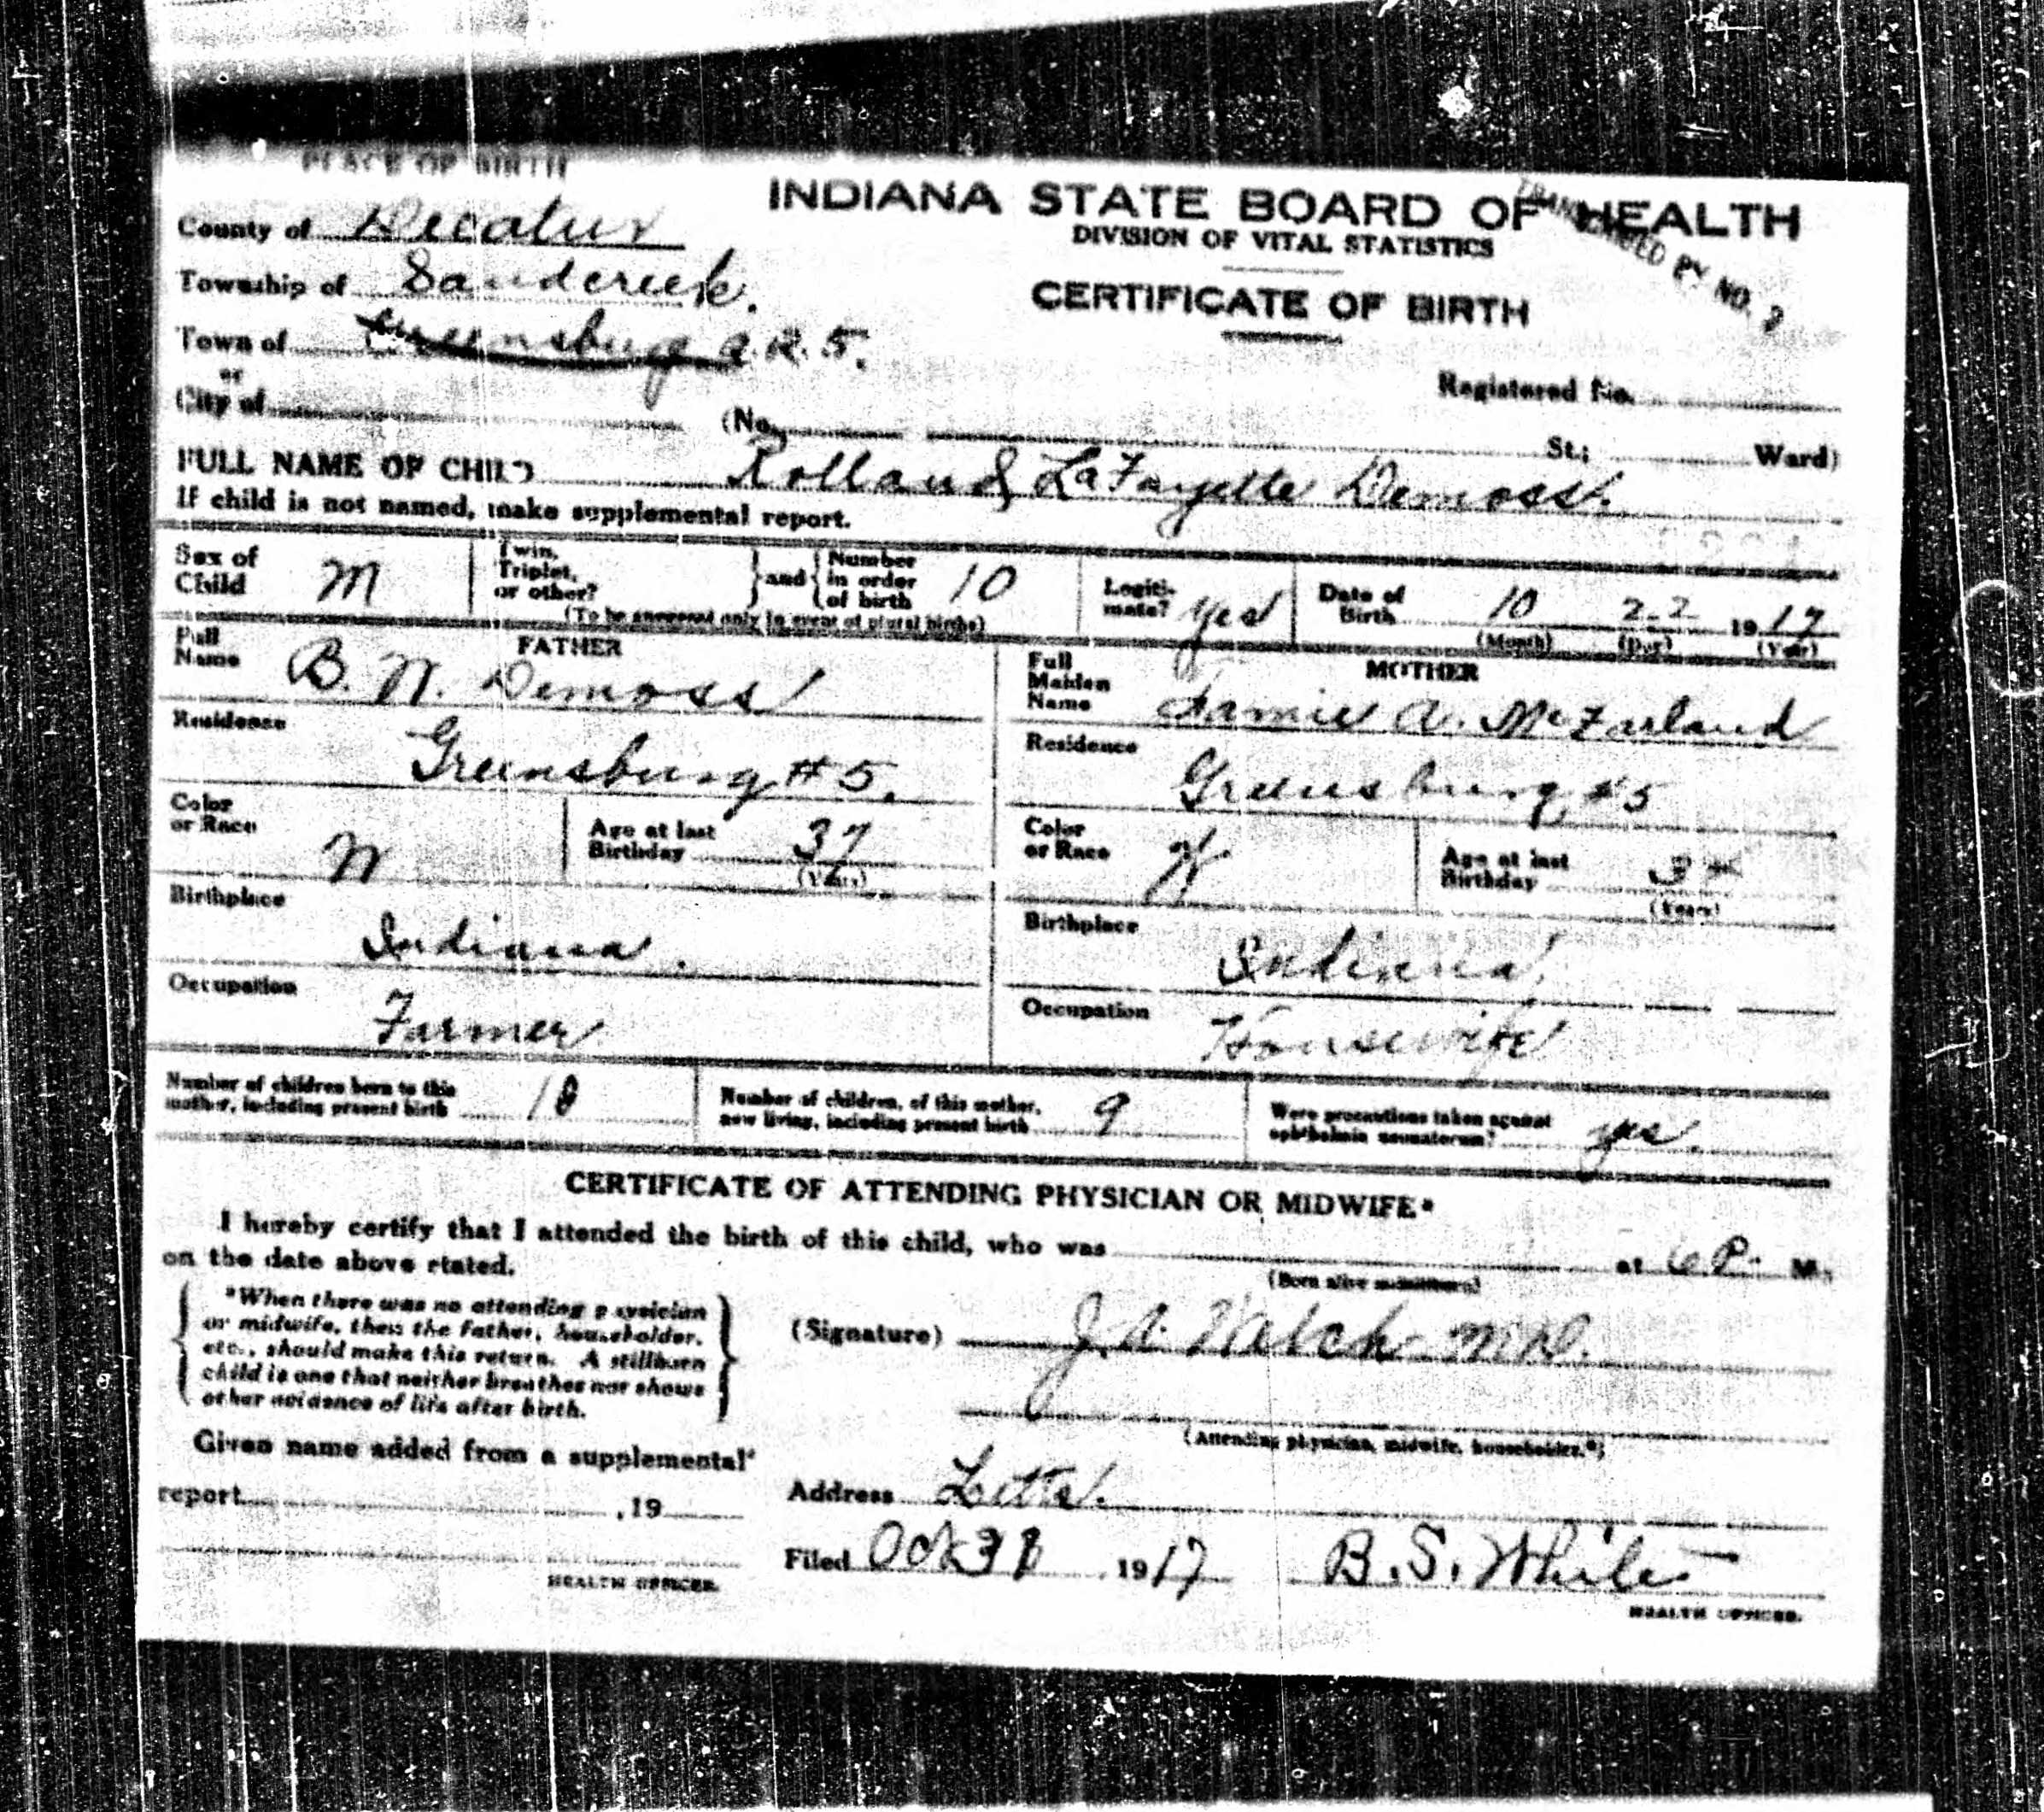 PLACE OF BIRTH
INDIANA STATE BOARD OF HEALTH
DIVISION OF VITAL STATISTICS
CERTIFICATE OF BIRTH
BY NO. 2
County of Decatur
Township of Sandcreek.
Town of Greensburg R. R. 5.
or
City of
Registered No.
(No. St.; Ward)
FULL NAME OF CHILD Rolland LaFayette Demoss.
If child is not named, make supplemental report.
Sex of Child M
Twin, Triplet, or other? and Number in order of birth 10
(To be answered only in event of plural births)
Legitimate? Yes
Date of Birth 10 22 1917
(Month) (Day) (Year)
FATHER
Full Name B. N. Demoss
Residence
Greensburg #5.
Color or Race W
Age at last Birthday 37
(Years)
Birthplace
Indiana.
Occupation
Farmer
MOTHER
Full Maiden Name A. McFarland
Residence
Greensburg #5
Color or Race W
Age at last Birthday
(Years)
Birthplace
Indiana
Occupation
Housewife
Number of children born to this mother, including present birth 10
Number of children, of this mother, now living, including present birth 9
Were precautions taken against ophthalmia neonatorum? yes.
CERTIFICATE OF ATTENDING PHYSICIAN OR MIDWIFE*
I hereby certify that I attended the birth of this child, who was at 6 P. M.
on the date above stated.
(Born alive or stillborn)
*When there was no attending physician
or midwife, then the father, householder,
etc., should make this return. A stillborn
child is one that neither breathes nor shows
other evidence of life after birth.
(Signature) J. A. Welch M.D.
(Attending physician, midwife, householder.*)
Given name added from a supplemental
report , 19
HEALTH OFFICER.
Address Letts.
Filed Oct 31 1917 B. S. White
HEALTH OFFICER.